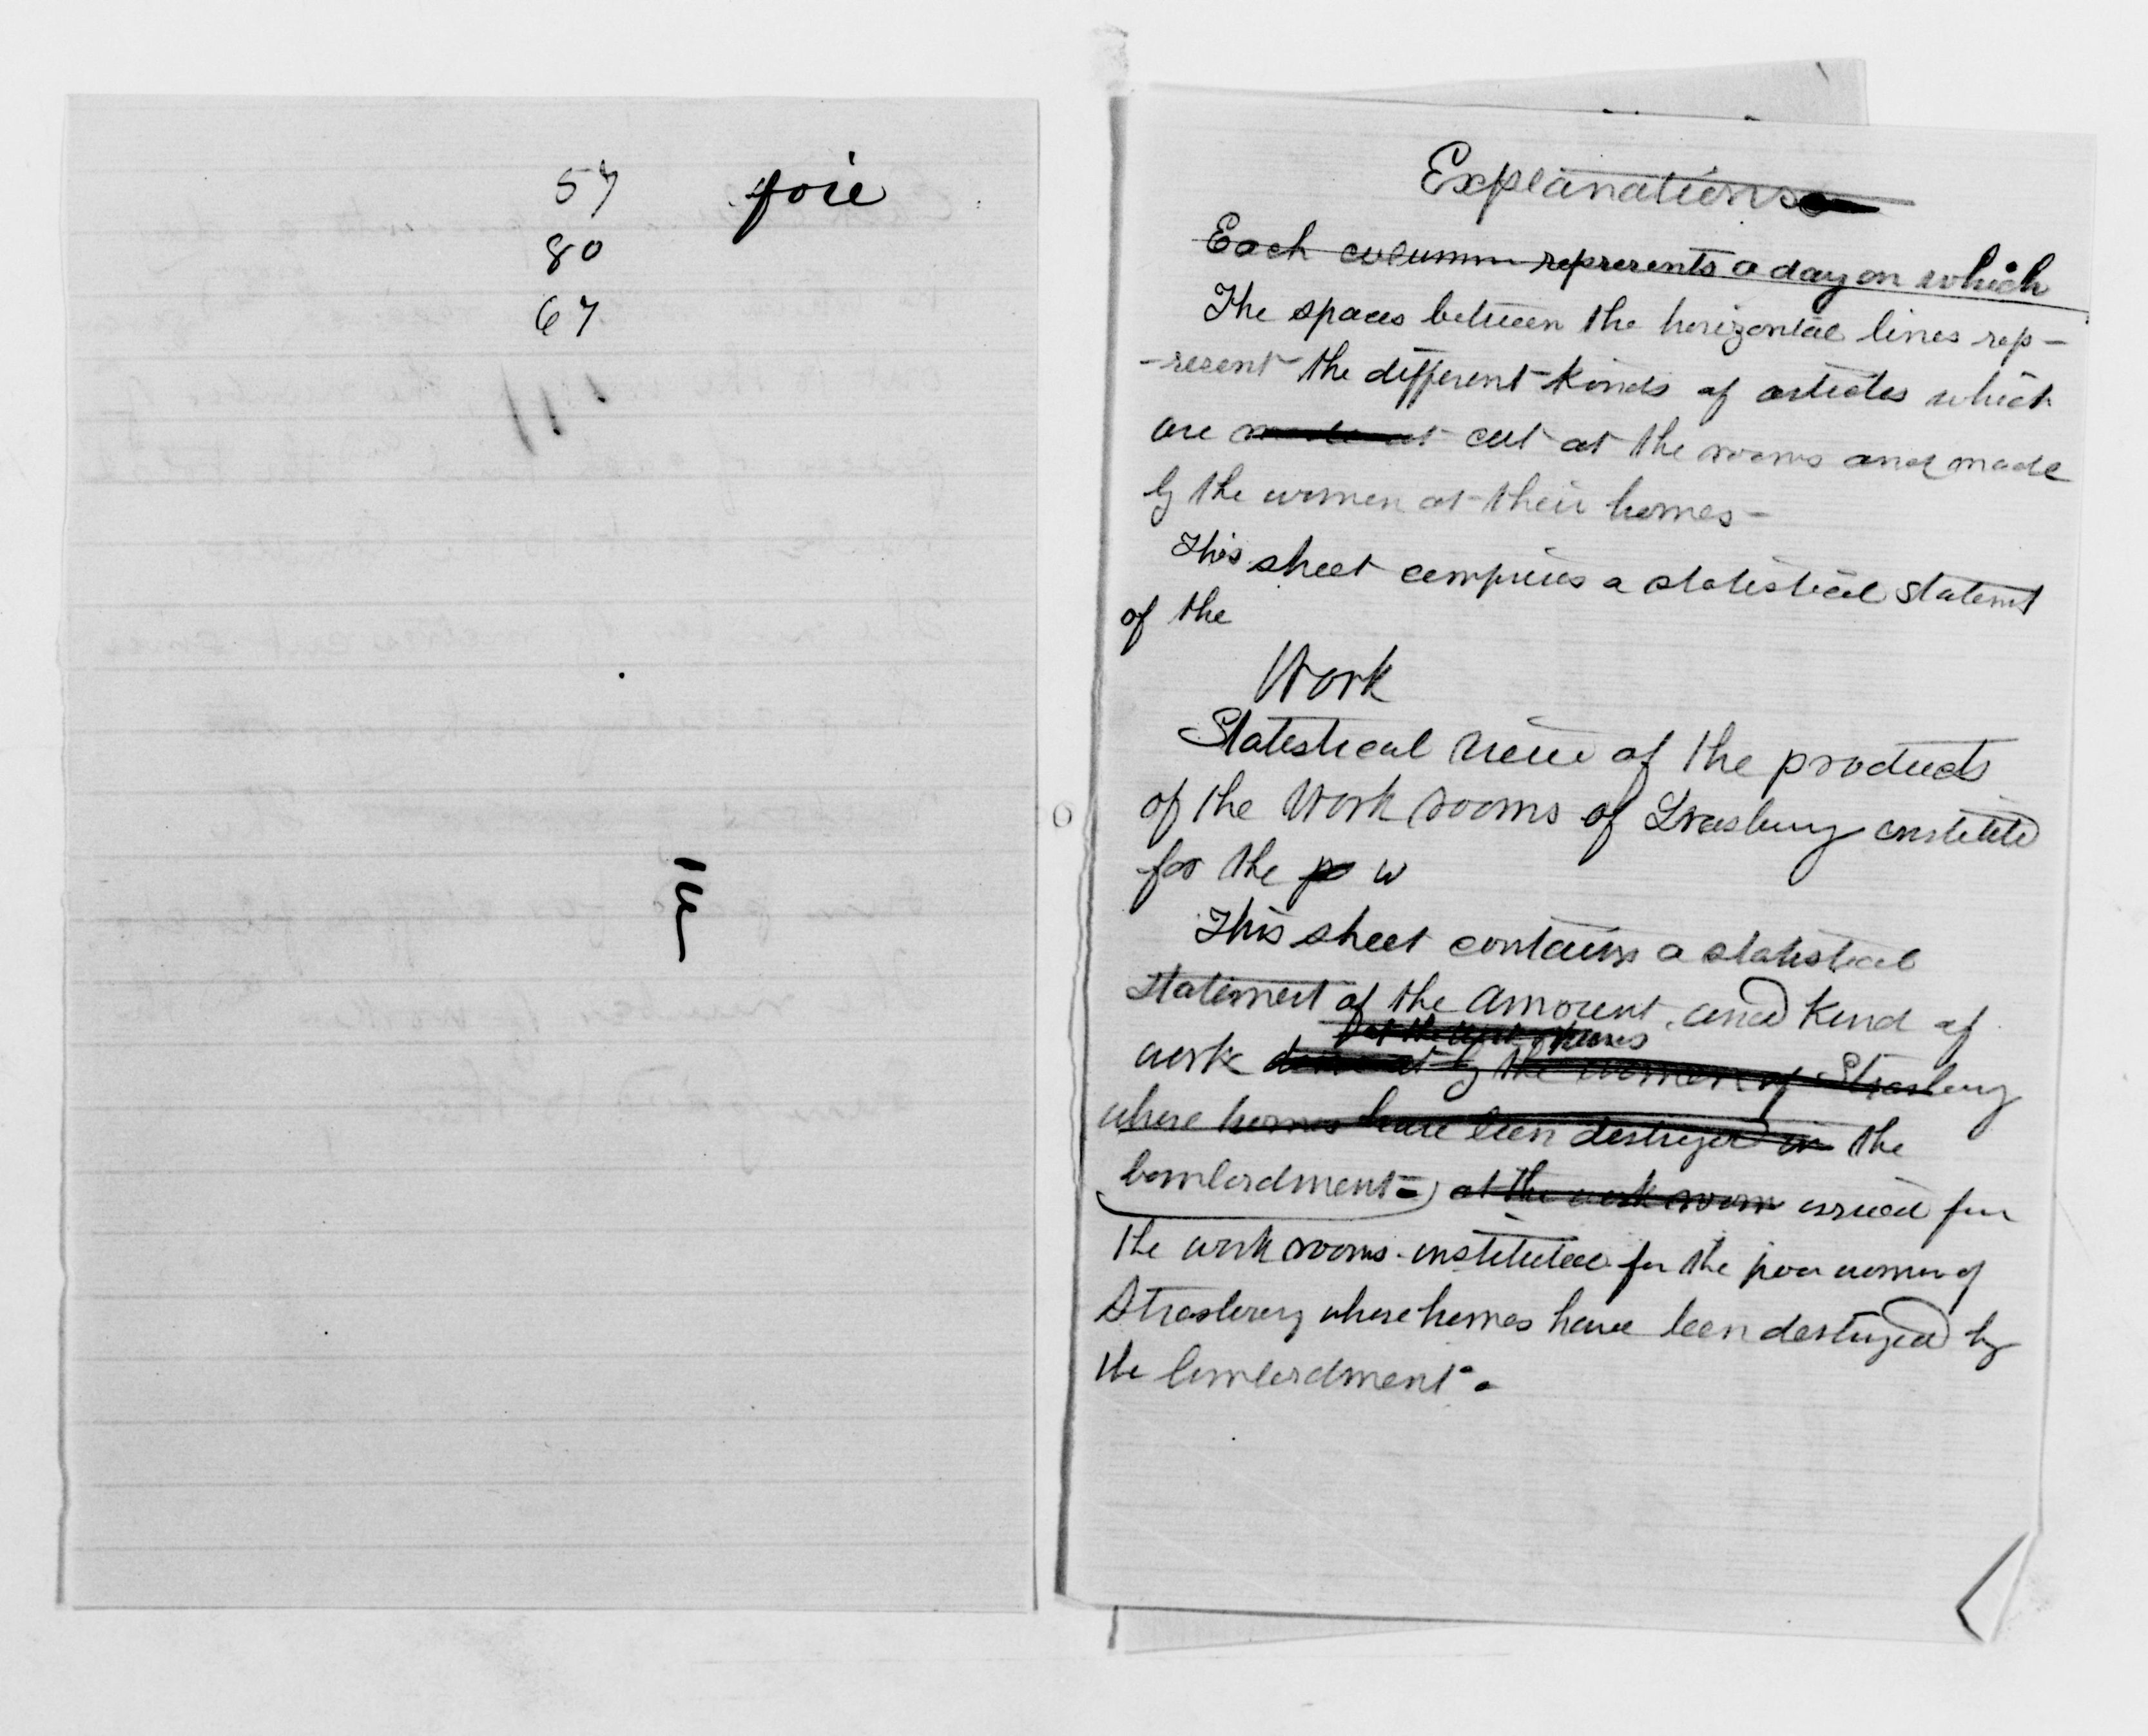 57 foie
80
67
Explanations
Each column represents a day on which
The spaces between the horizontal lines rep-
-resent the different kinds of articles which
are made at cut at the rooms and made
by the women at their homes-
This sheet comprises a statistical statemt
of the
Work
Statistical view of the products
of the Work rooms of Strasburg institute
for the po w
This sheet contains a statistical
statement of the amount and kind of
at the work rooms
work done at by the women of Strasburg
whose homes have been destroyed in the
bombardment- at the work room issued from
the work rooms instituted for the poor women of
Strasburg whose homes have been destroyed by
the bombardment.